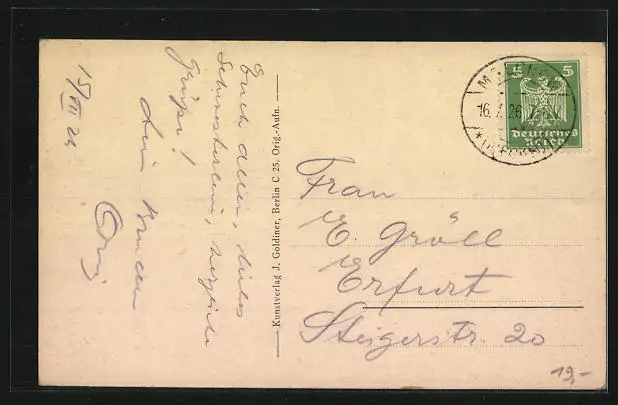 15/VII 26
Euch allen, liebes
Schwesterlein, herzliche
Grüße!
Dein Bruder
Kunstverlag J. Goldiner, Berlin C 25. Orig.-Aufn.
5 5
Deutsches
Reich
16. 7. 26
Frau
E. Gröll
Erfurt
Steigerstr. 20
19,-